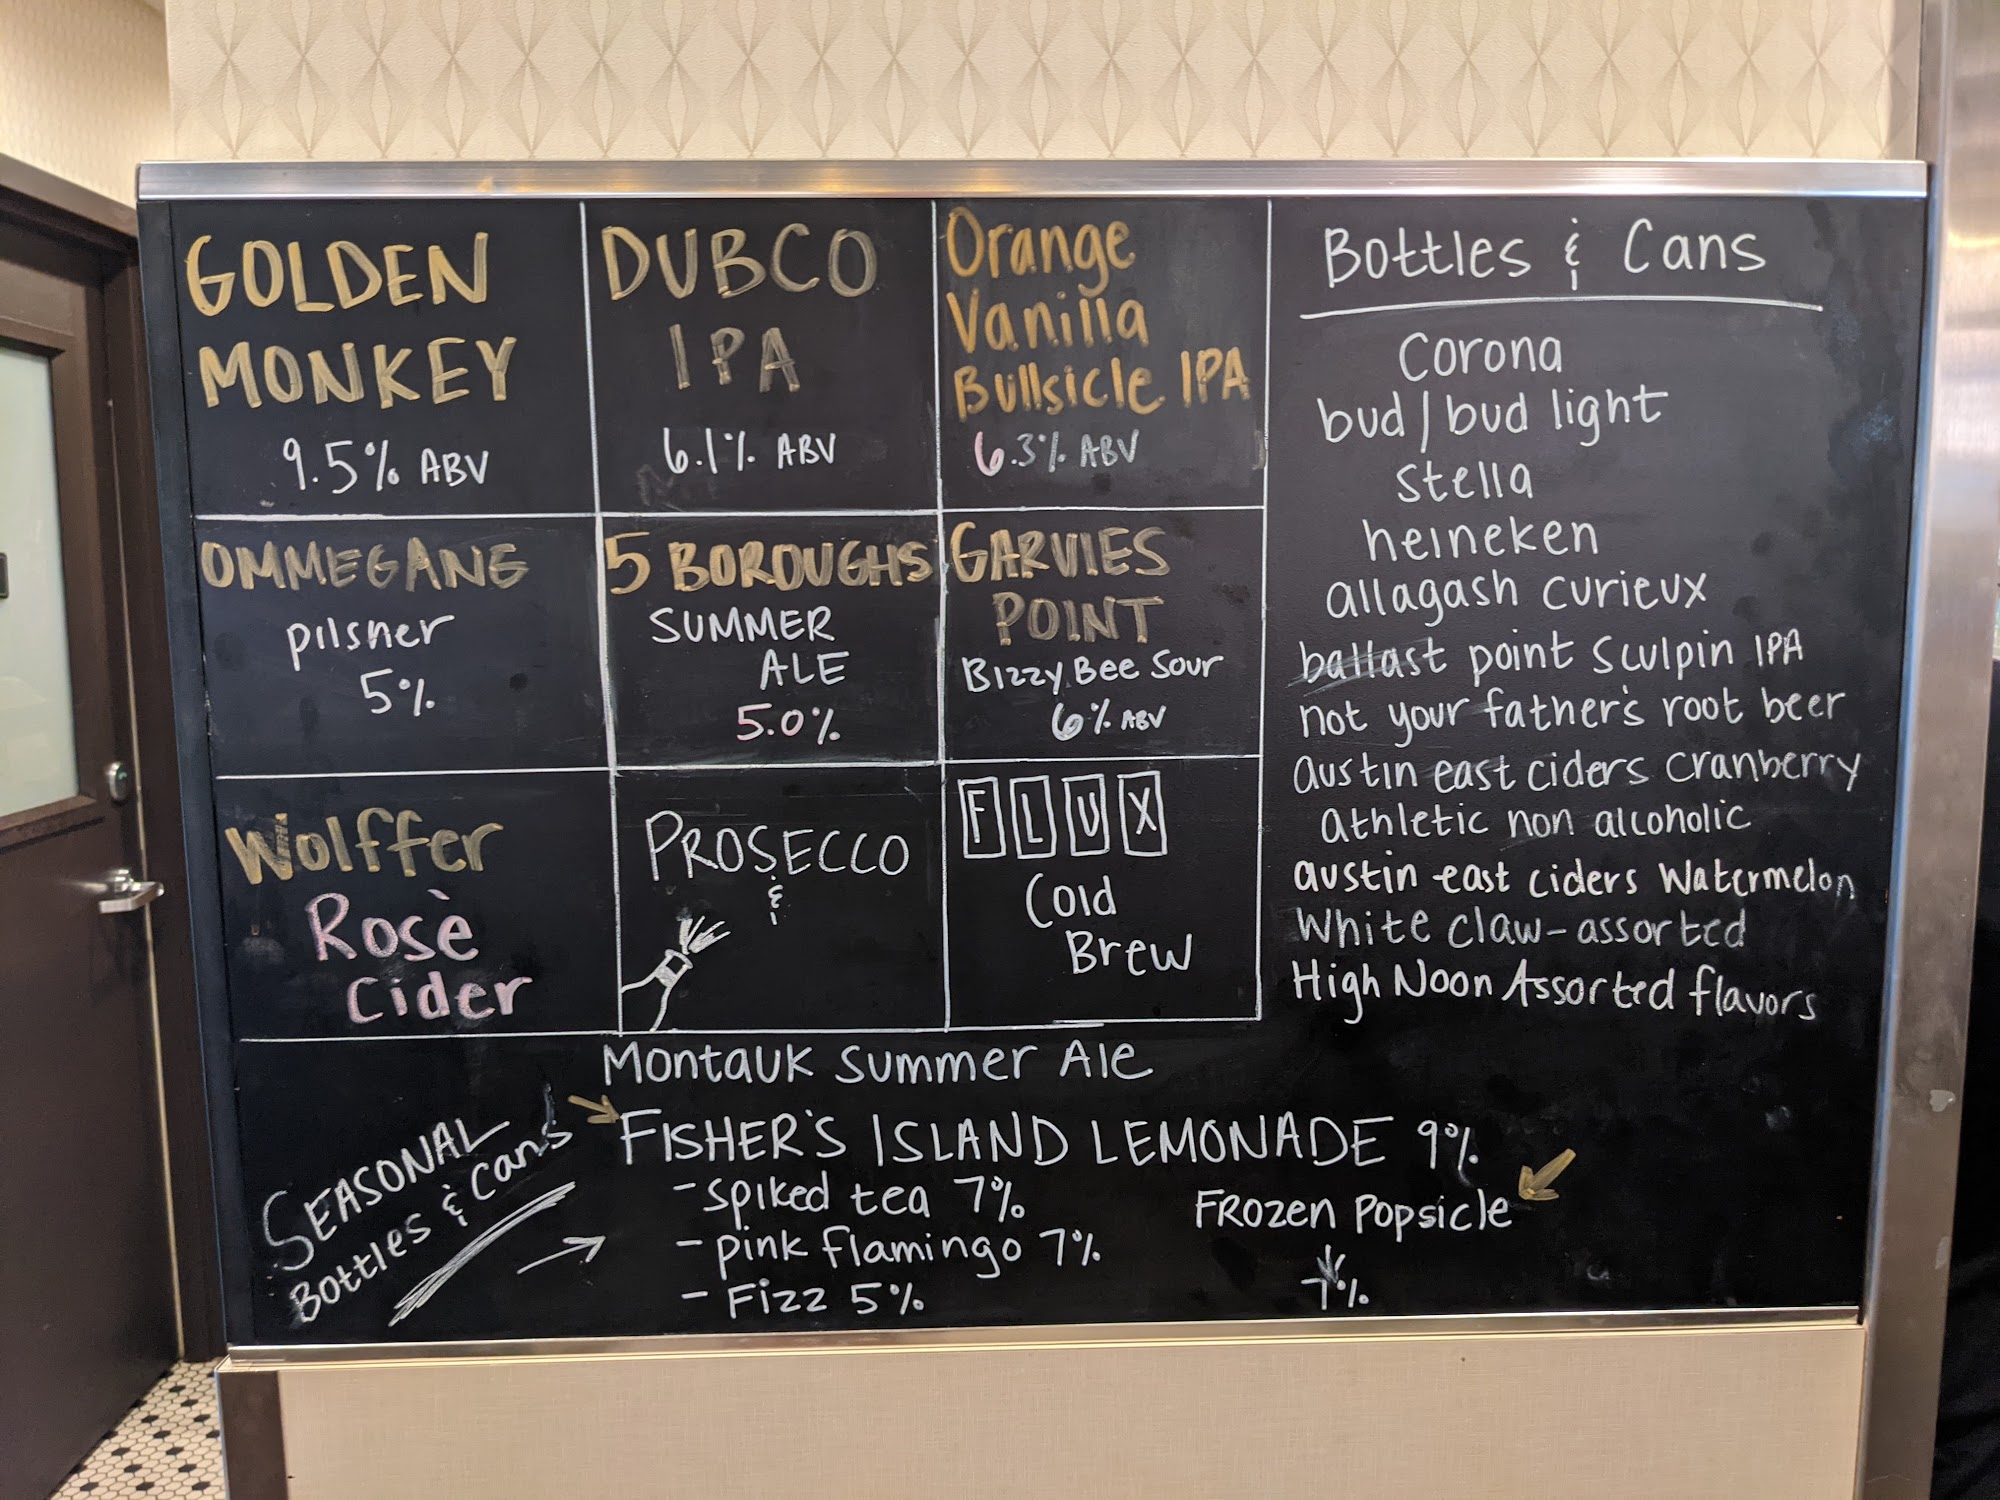 GOLDEN
MONKEY
9.5% ABV
DUBCO
IPA
6.1% ABV
Orange
Vanilla
Bullsicle IPA
6.3% ABV
OMMEGANG
pilsner
5%
5 BOROUGHS
SUMMER
ALE
5.0%
GARVIES
POINT
Bizzy Bee Sour
6% ABV
Wolffer
Rosè
Cider
PROSECCO
&
FLUX
Cold
Brew
Bottles & Cans
Corona
bud/bud light
Stella
heineken
allagash curieux
ballast point Sculpin IPA
not your father's root beer
austin east ciders cranberry
athletic non alcoholic
austin east ciders Watermelon
White Claw-assorted
High Noon Assorted flavors
SEASONAL
Bottles & Cans
Montauk Summer Ale
FISHER'S ISLAND LEMONADE 9%
-spiked tea 7%
-pink flamingo 7%
-Fizz 5%
FROZEN Popsicle
7%